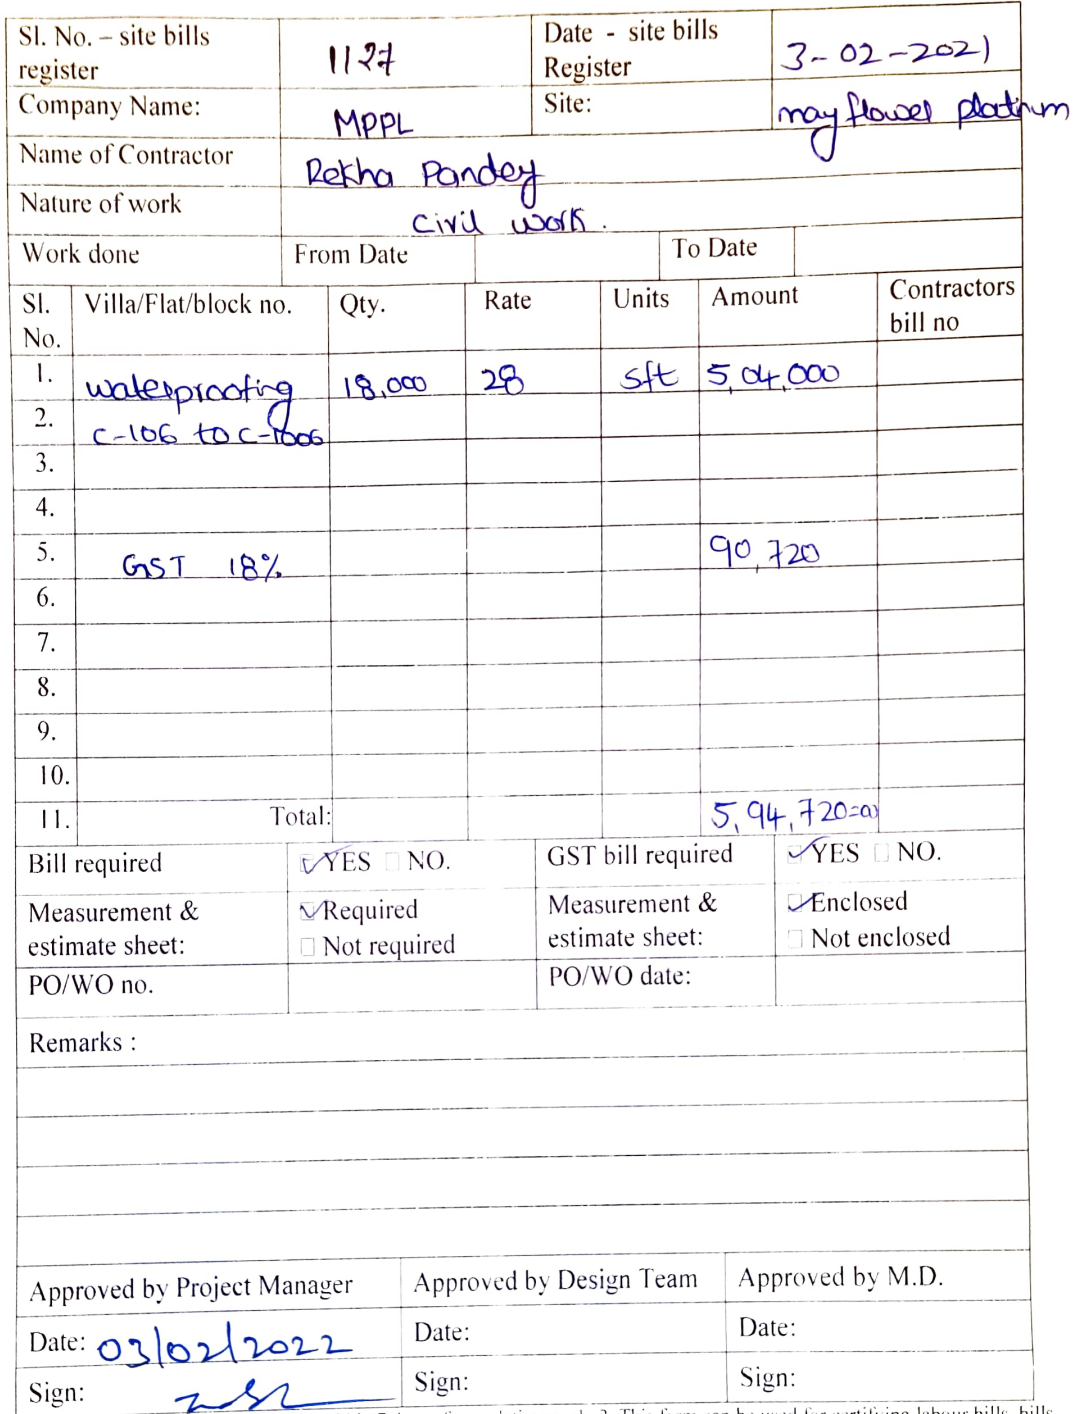 Sl. No. – site bills register 1127 Date - site bills Register 3-02-2021
Company Name: MPPL Site: mayflower platinum
Name of Contractor Rekha Pandey
Nature of work civil work.
Work done From Date To Date
Sl. No. Villa/Flat/block no. Qty. Rate Units Amount Contractors bill no
1. waterproofing 18,000 28 sft 5,04,000
2. C-106 to C-1006
3.
4.
5. GST 18% 90,720
6.
7.
8.
9.
10.
11. Total: 5,94,720=00
Bill required YES NO. GST bill required YES NO.
Measurement & estimate sheet: Required Not required Measurement & estimate sheet: Enclosed Not enclosed
PO/WO no. PO/WO date:
Remarks :
Approved by Project Manager Approved by Design Team Approved by M.D.
Date: 03/02/2022 Date: Date:
Sign: Sign: Sign: